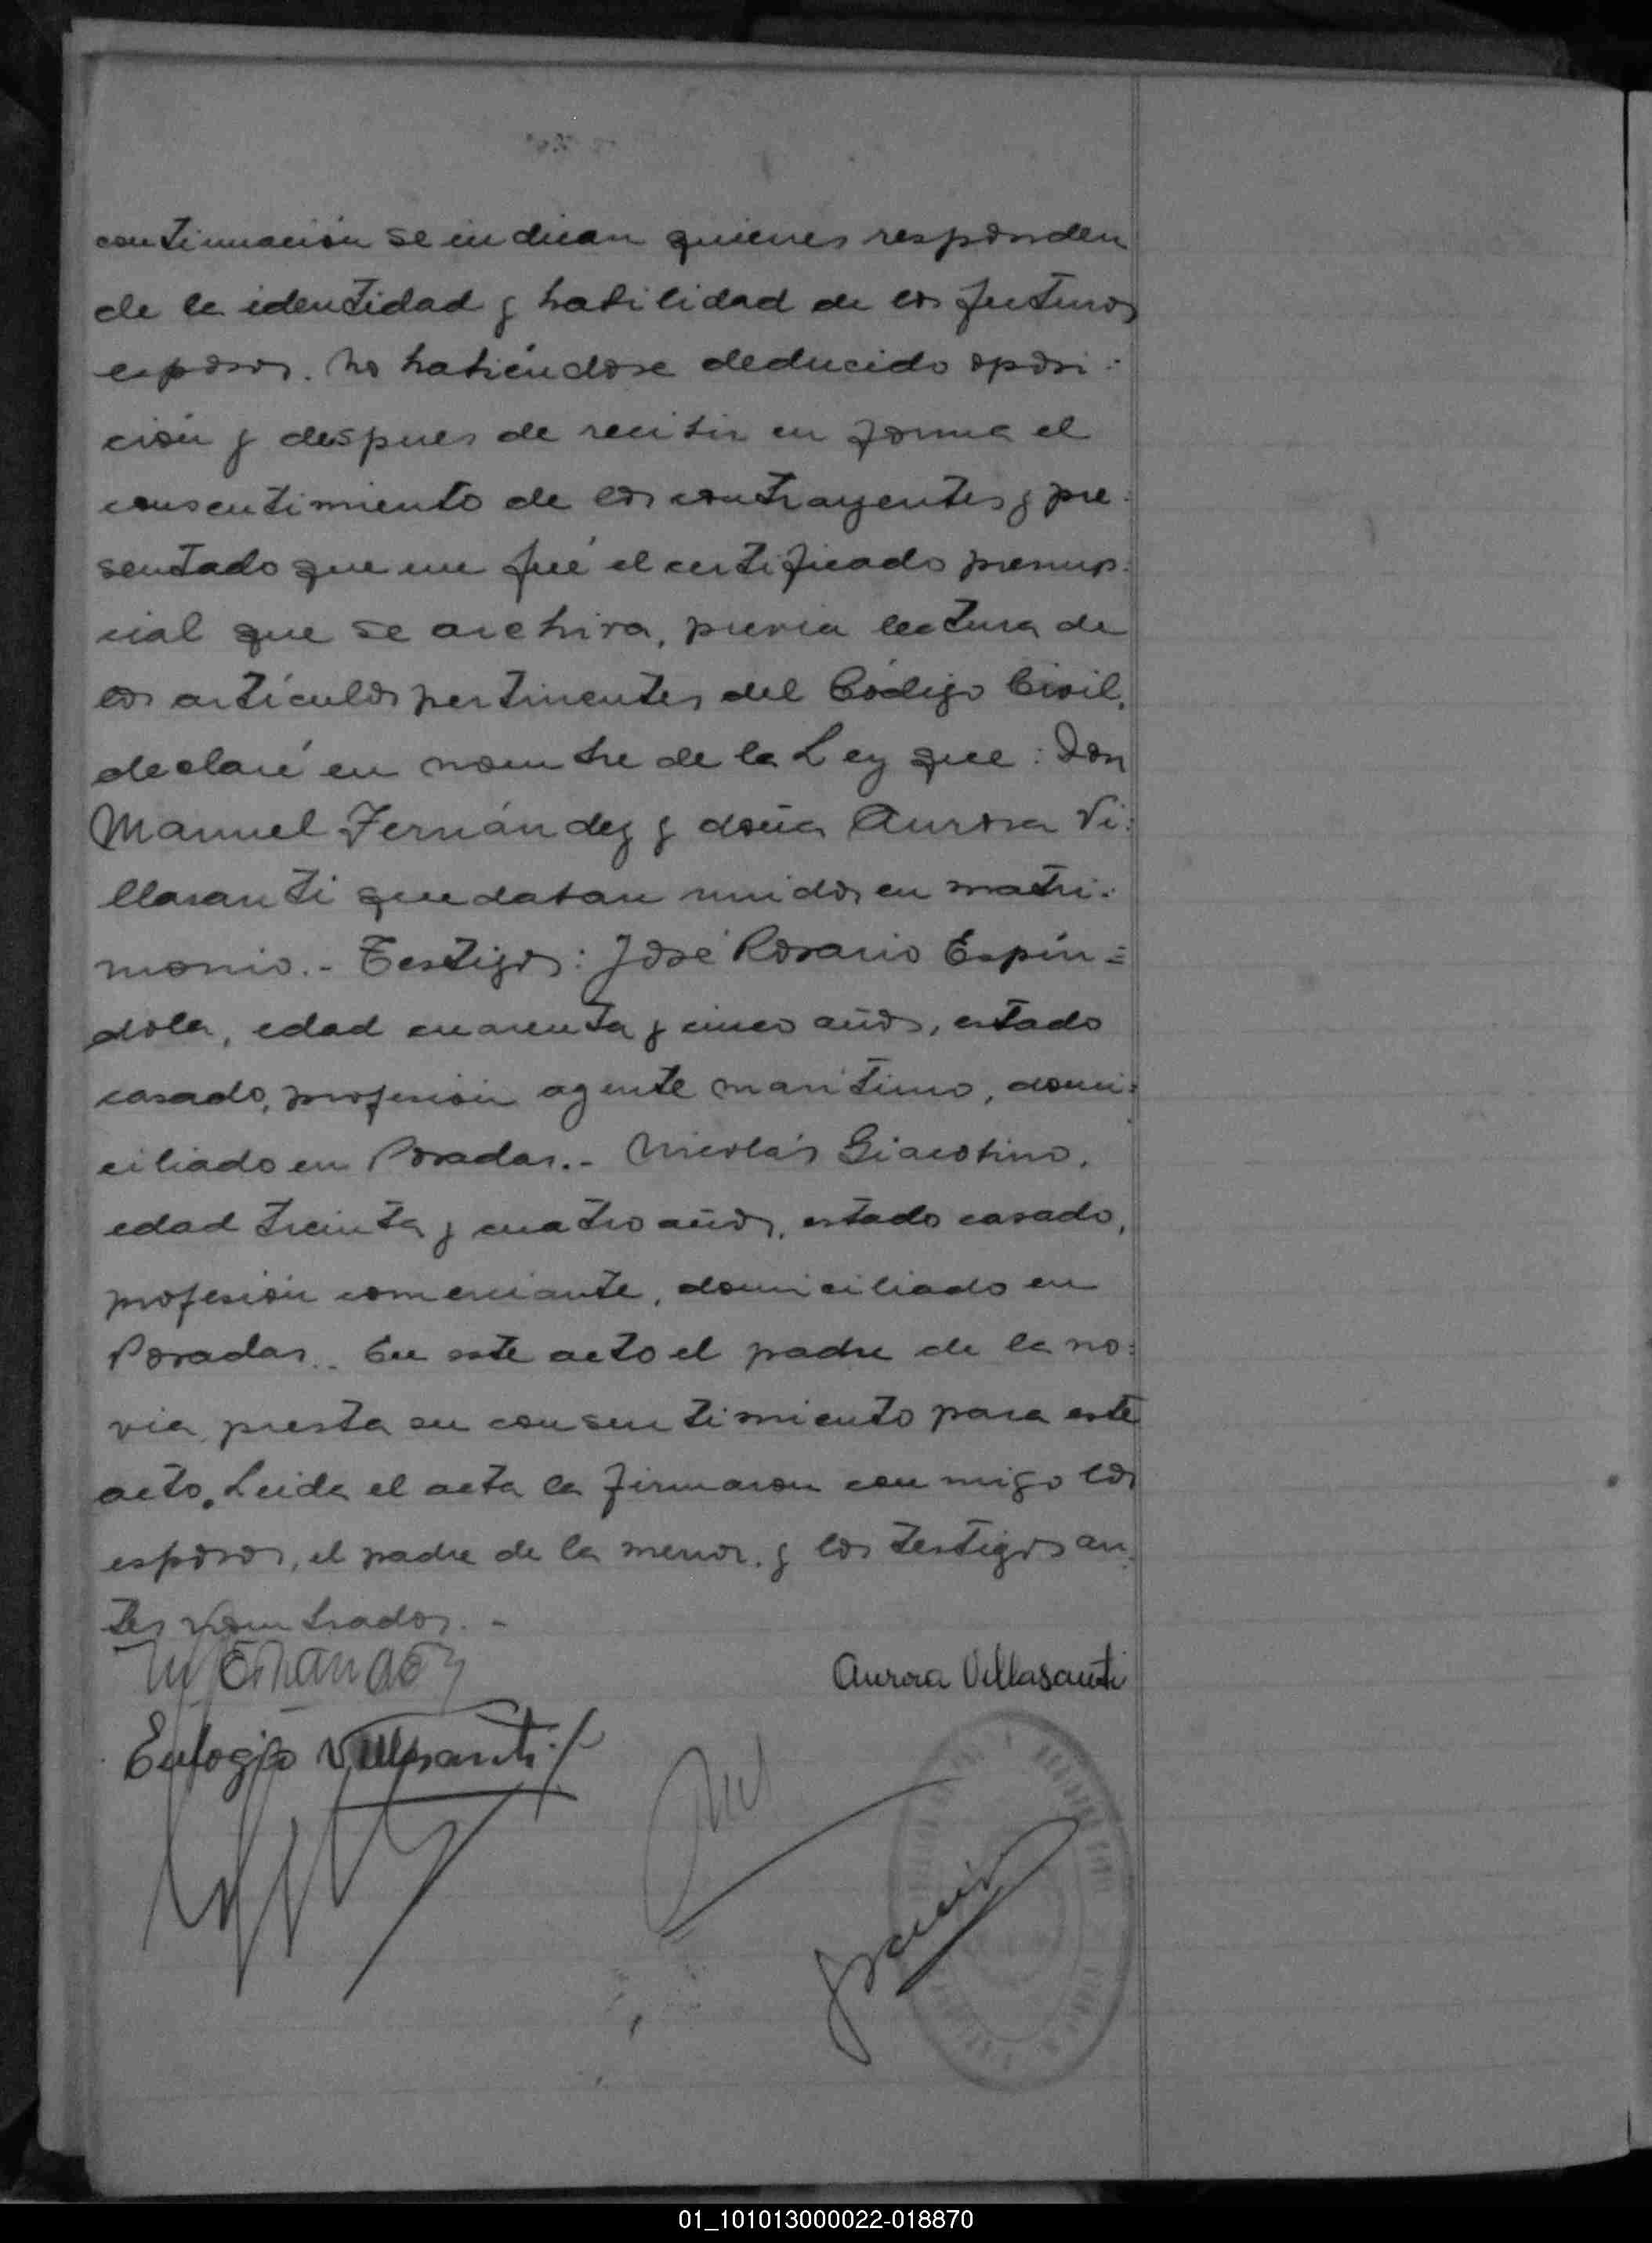 continuación se indican quienes responden
de la identidad y habilidad de los futuros
esposos. No habiéndose deducido oposi-
ción y despues de recibir en forma el
consentimiento de los contrayentes y pre-
sentado que me fué el certificado prenup-
cial que se archiva, previa lectura de
los artículos pertinentes del Código Civil,
declaré en nombre de la Ley que: Don
Manuel Fernández y doña Aurora Vi-
llasanti quedaban unidos en matri-
monio.- Testigos: José Rosario Espín=
dola, edad cuarenta y cinco años, estado
casado, profesión agente maritimo, domi-
ciliado en Posadas.- Nicolás Giacobino,
edad treinta y cuatro años, estado casado,
profesión comerciante, domiciliado en
Posadas.. En este acto el padre de la no-
via presta su consentimiento para este
acto. Leida el acta la firmaron con migo los
esposos, el padre de la menor. y los testigos an-
tes nombrados. -
M Fernandez
Aurora Villasanti
Eulogio Villasanti
01_101013000022-018870